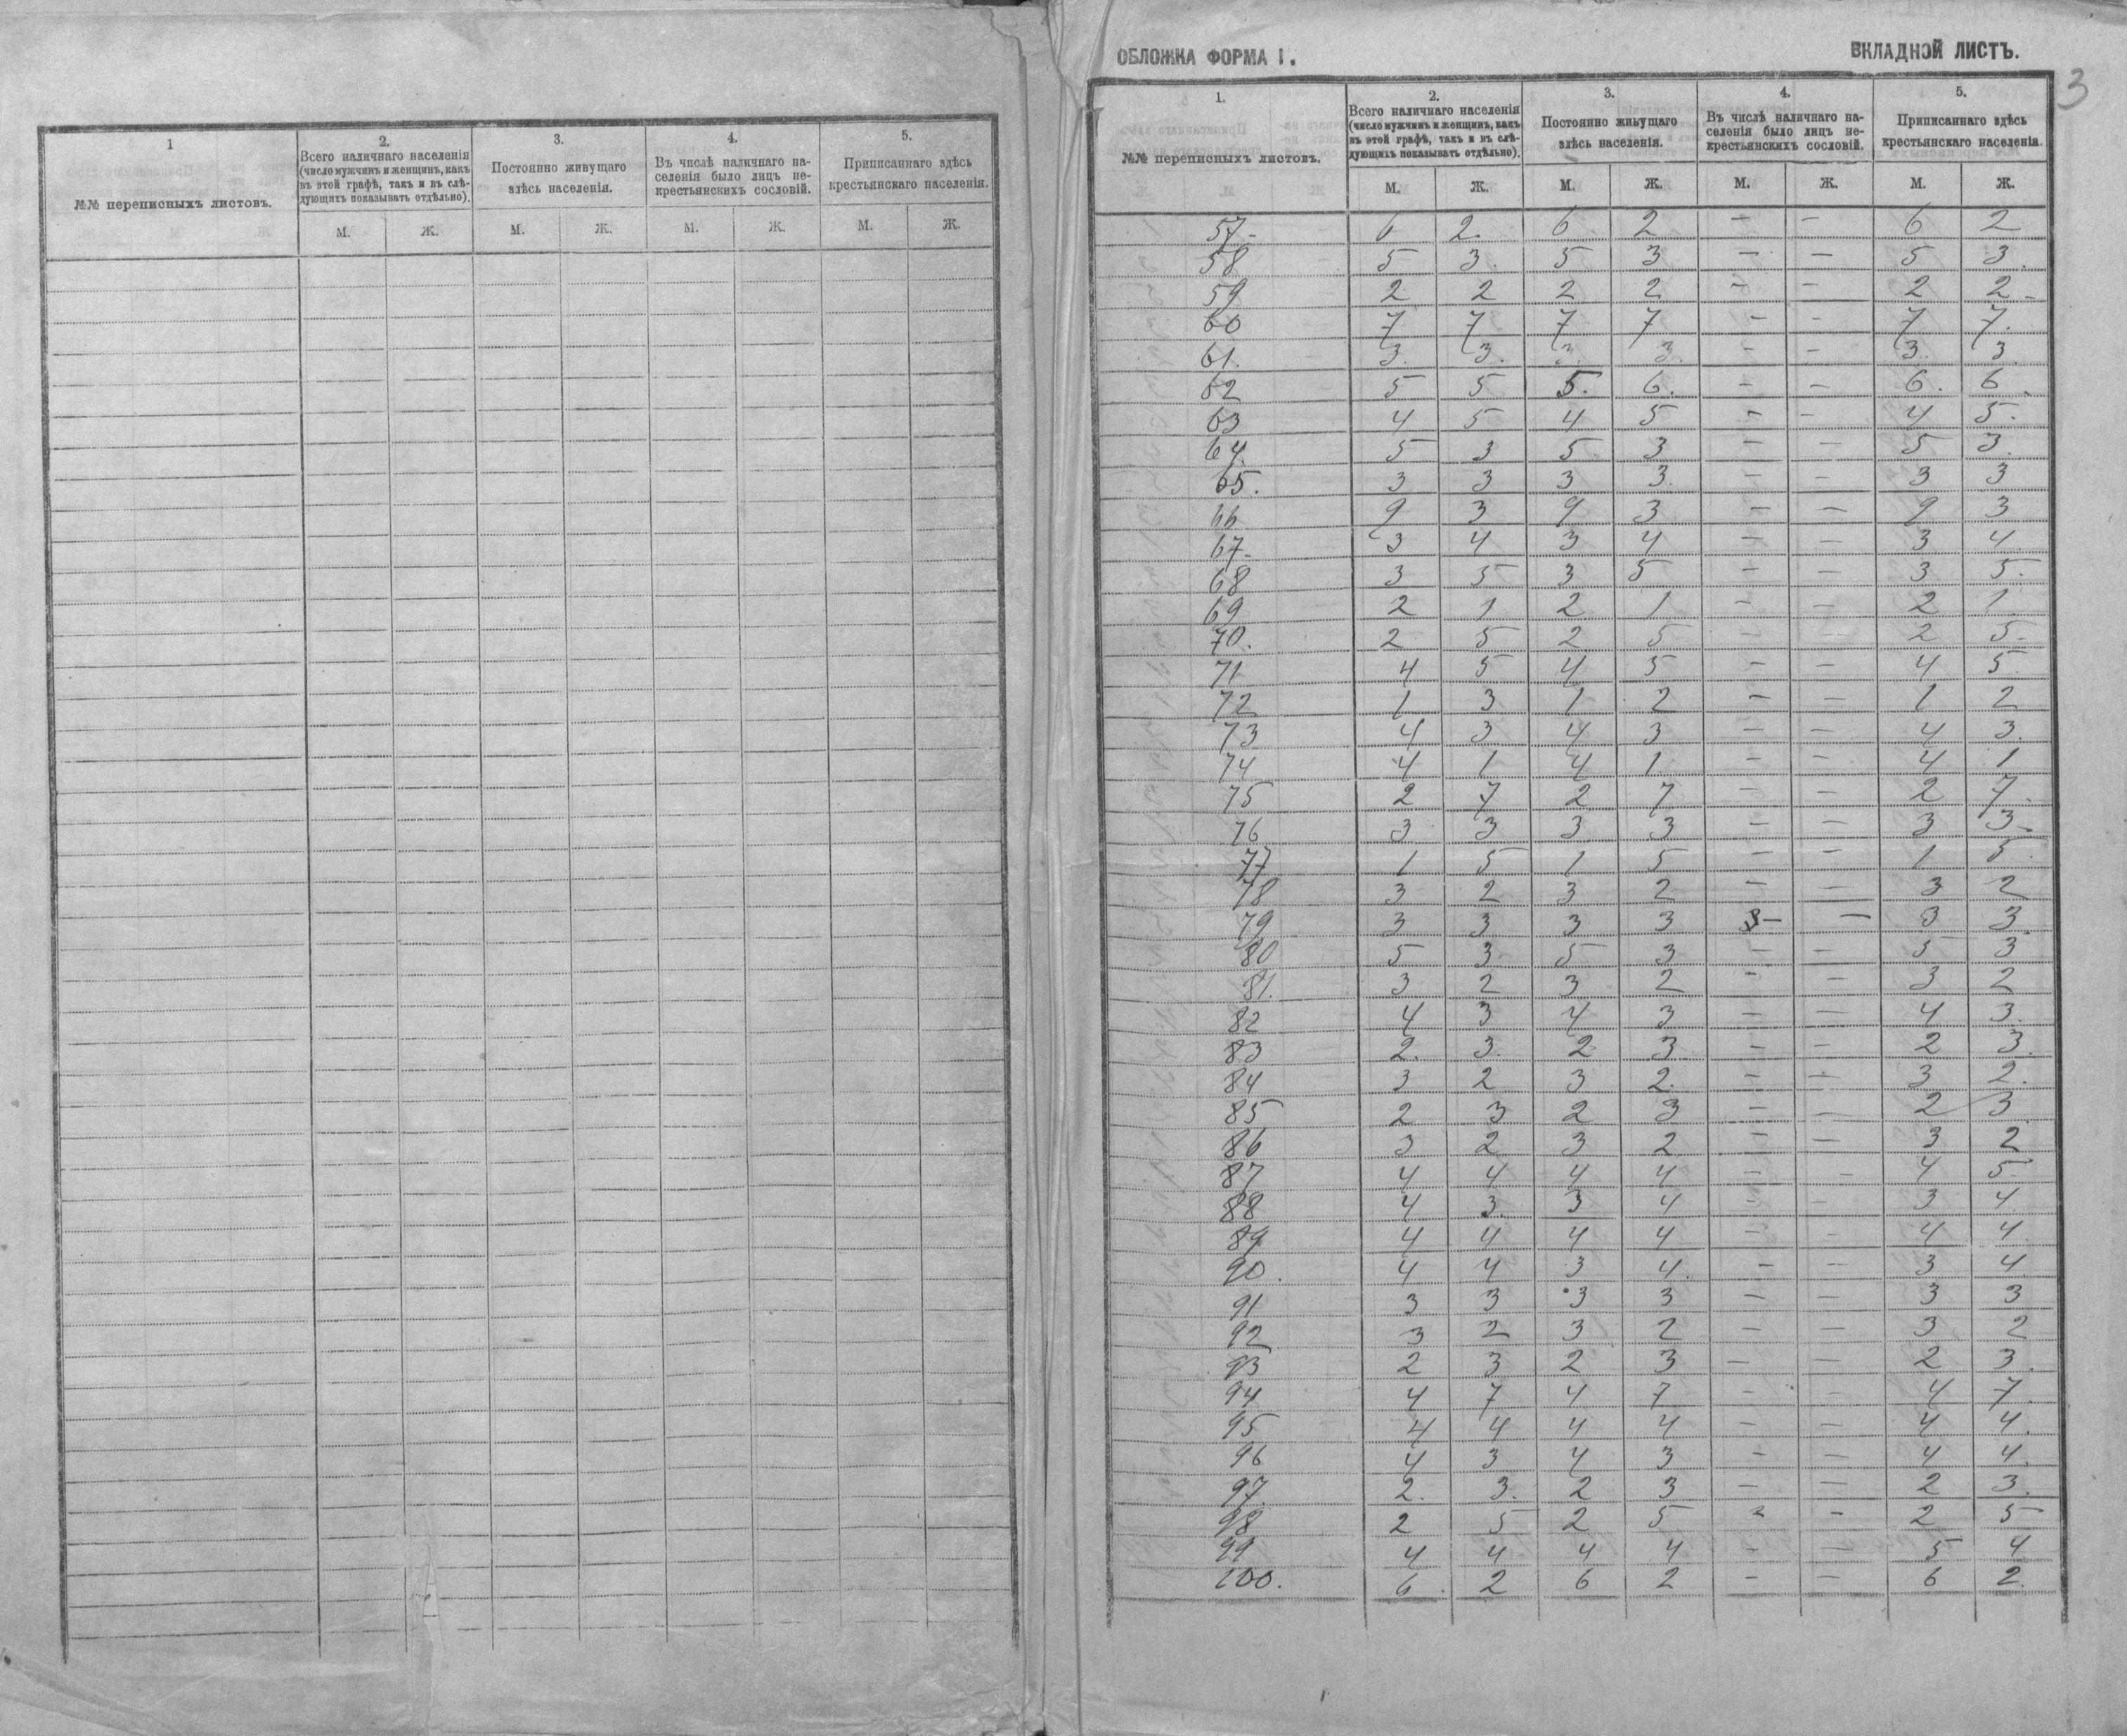 1
№№ переписныхъ листовъ.
2.
Всего наличнаго населенія
(число мужчинъ и женщинъ, какъ
въ этой графѣ, такъ и въ слѣ-
дующихъ показывать отдѣльно).
3.
Постоянно живущаго
здѣсь населенія.
4.
Въ числѣ наличнаго на-
селенія было лицъ не-
крестьянскихъ сословій.
5.
Приписаннаго здѣсь
крестьянскаго населенія.
М. Ж. М. Ж. М. Ж. М. Ж.
ОБЛОЖКА ФОРМА I.
ВКЛАДНОЙ ЛИСТЪ.
3
1.
№№ переписныхъ листовъ.
2.
Всего наличнаго населенія
(число мужчинъ и женщинъ, какъ
въ этой графѣ, такъ и въ слѣ-
дующихъ показывать отдѣльно).
3.
Постоянно живущаго
здѣсь населенія.
4.
Въ числѣ наличнаго на-
селенія было лицъ не-
крестьянскихъ сословій.
5.
Приписаннаго здѣсь
крестьянскаго населенія.
М. Ж. М. Ж. М. Ж. М. Ж.
57- 6 2. 6 2 - - 6 2
58 5 3. 5 3 - - 5 3.
59 2 2 2 2 - - 2 2-
60 7 7 7 7 - - 7 7.
61. 3. 3. 3. 3. - - 3. 3.
62 5 5 5. 6. - - 6. 6.
63 4 5 4 5 - - 4 5.
64. 5 3 5 3 - - 5 3.
65. 3 3 3 3. - - 3 3
66 9 3 9 3 - - 9 3
67- 3 4 3 4 - - 3 4.
68 3 5 3 5 - - 3 5.
69 2 1 2 1 - - 2 1.
70. 2 5 2 5 - - 2 5-
71 4 5 4 5 - - 4 5.
72 1 3 1 2 - - 1 2
73 4 3 4 3 - - 4 3.
74 4 1 4 1. - - 4 1
75 2 7 2 7 - - 2 7-
76 3 3 3 3 - - 3 3-
77 1 5 1 5 - - 1 5.
78 3 2 3 2 - - 3 2
79 3 3 3 3 - - 3 3.
80 5 3 5 3 - - 5 3
81. 3 2 3 2 - - 3 2
82 4 3 4 3 - - 4 3.
83 2. 3. 2 3 - - 2 3.
84 3 2 3 2. - - 3 2.
85 2 3 2 3 - - 2 3
86 3 2 3 2 - - 3 2
87 4 4 4 4 - - 4 5
88 4 3. 3 4 - - 3 4
89 4 4 4 4 - - 4 4
90. 4 4 3 4. - - 3 4
91 3 3 3 3 - - 3 3
92 3 2 3 2 - - 3 2
93 2 3 2 3 - - 2 3.
94 4 7 4 7 - - 4 7.
95 4 4 4 4 - - 4 4.
96 4 3 4 3 - - 4 4.
97. 2. 3. 2 3 - - 2 3.
98 2 5 2 5 - - 2 5
99 4 4 4 4 - - 5 4
100. 6. 2 6 2 - - 6 2.